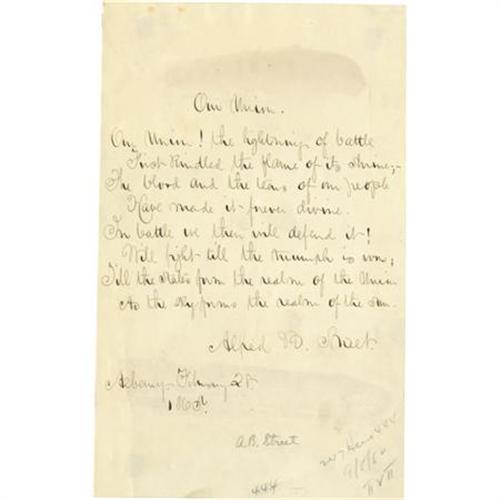 Our Union.
Our Union! the lightnings of battle
First kindled the flame of its shrine;-
The blood and the tears of our people
Have made it forever divine.
In battle we then will defend it!
Will fight till the triumph is won;
Till the States form the realm of the Union
As the sky forms the realm of the Sun.
Alfred B. Street.
Albany February 28
A.B. Street
444